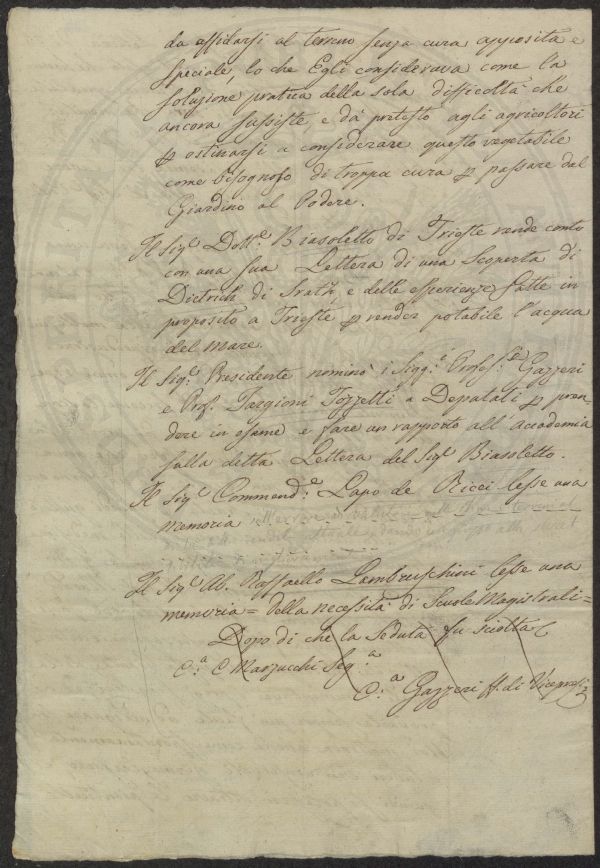 da affidarsi al terreno senza cura apposita e
speciale, lo che Egli considerava come la
soluzione pratica della sola difficoltà che
ancora sussiste e dà pretesto agli agricoltori
p ostinarsi a considerare questo vegetabile
come bisognoso di troppa cura p passare dal
Giardino al Podere.
Il Sigr. Dottr. Biasoletto di Trieste rende conto
con una sua Lettera di una Scoperta di
Dietrich di e delle esperienze fatte in
proposito a Trieste p render potabile l'acqua
del mare.
Il Sigr. Presidente nominò i Sigg.i Profess.i Gazzeri
e Prof. Targioni Tozzetti a Deputati p pren-
dere in esame e fare un rapporto all'Accademia
sulla detta Lettera del Sigr. Biasoletto.
Il Sigr. Commend.e Lapo de Ricci lesse una
memoria
Il Sigr. Ab. Raffaello Lambruschini lesse una
memoria = della necessità di Scuole Magistrali =
Dopo di che la Seduta fu sciolta
C.a C Marzucchi Seg.a
C.a Gazzeri ff. di Vicepresi